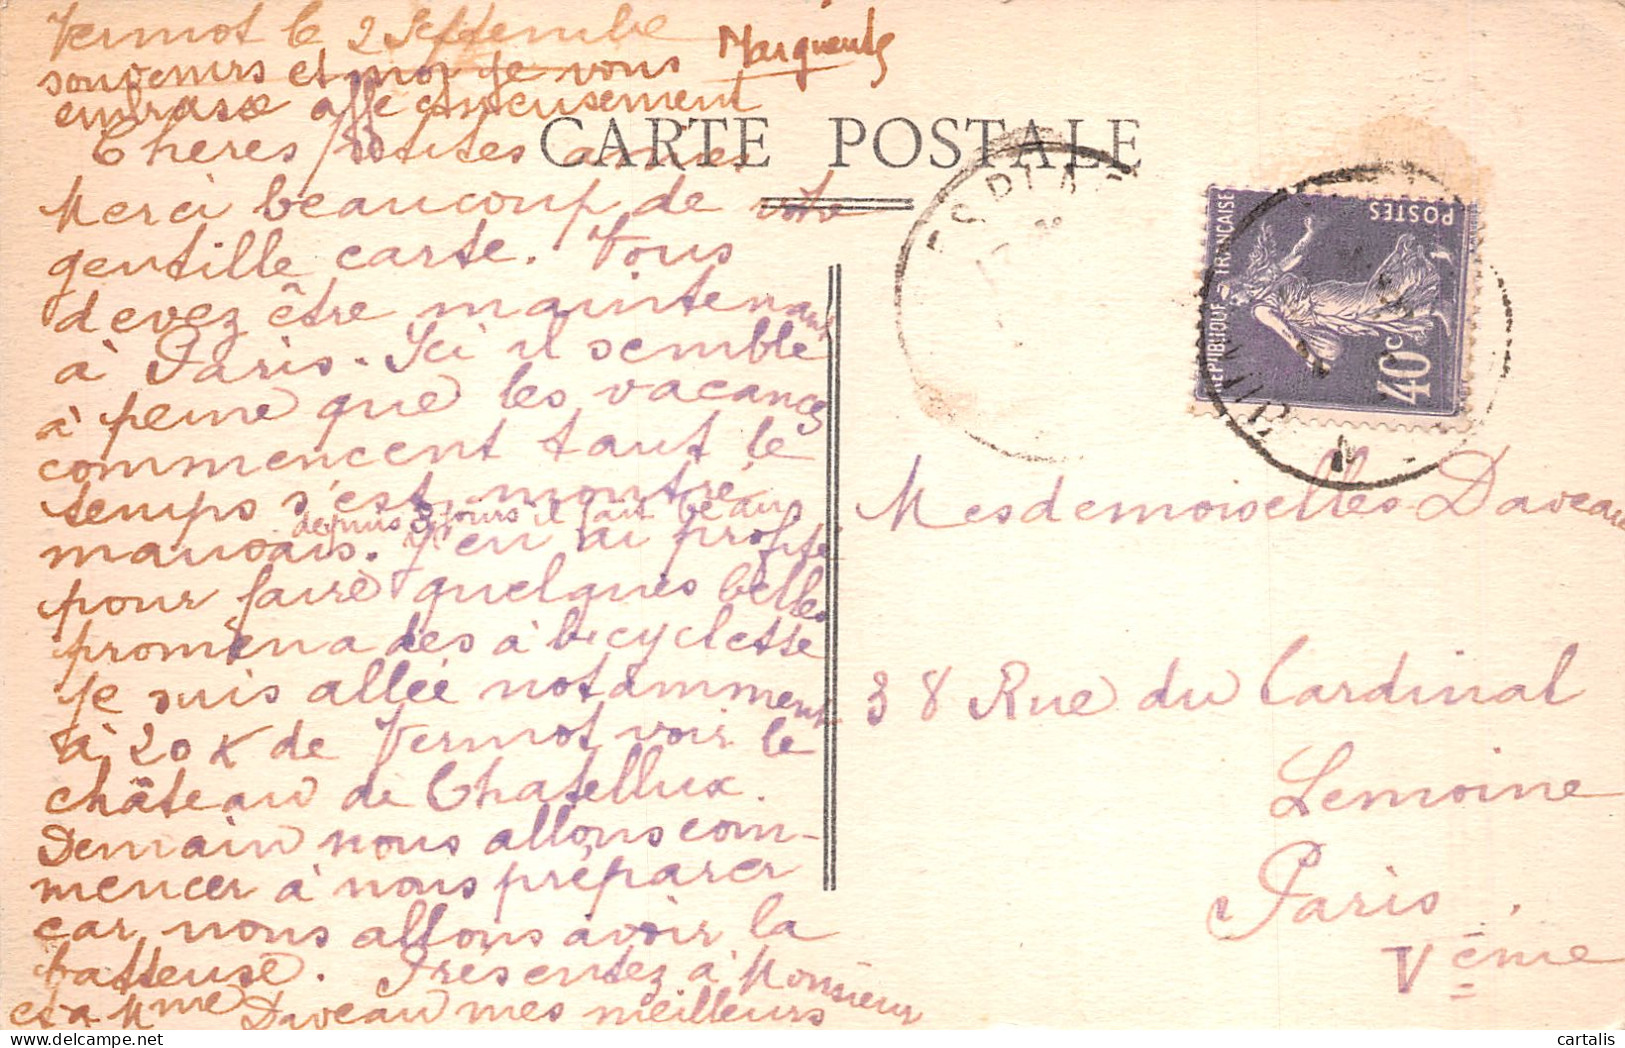 Vermot le 2 Septembre
souvenirs et moi je vous
embrasse affectueusement
Marguerite
CARTE POSTALE
Chères petites amies
Merci beaucoup de votre
gentille carte. Vous
devez être maintenant
à Paris. Ici il semble
à peine que les vacances
commencent tant le
temps s'est montré
mauvais. depuis 3 jours il fait beau
J'en ai profité
pour faire quelques belles
promenades à bicyclette
je suis allée notamment
à 20 K de Vermot voir le
château de Chatellux.
Demain nous allons com-
mencer à nous préparer
car nous allons avoir la
batteuse. Présentez à Monsieur
et à Mme Daveau mes meilleurs
REPUBLIQUE FRANÇAISE
POSTES
40 c
Mesdemoiselles Daveau
38 Rue du Cardinal
Lemoine
Paris
Vème
cartalis